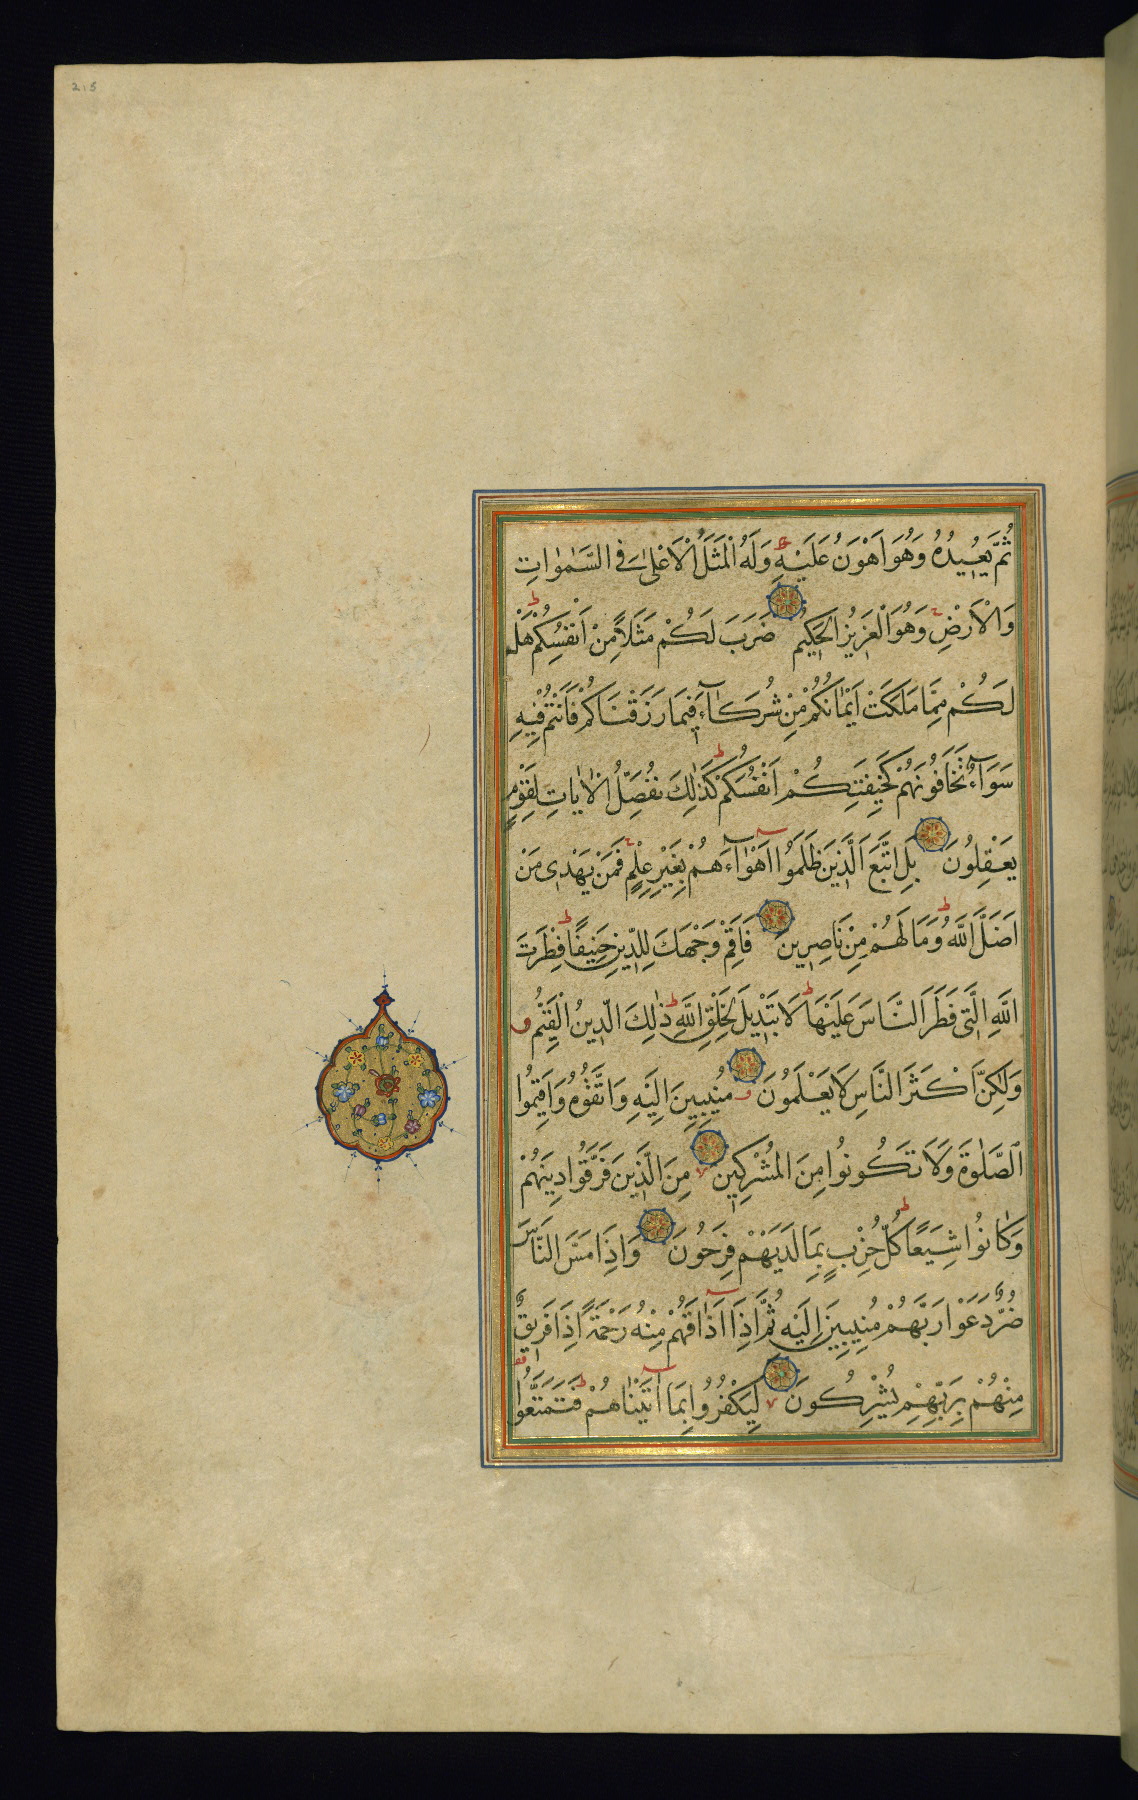 213
ثُمَّ يُعِيدُهُ وَهُوَ اَهْوَنُ عَلَيْهِ وَلَهُ الْمَثَلُ الْاَعْلٰى فِى السَّمٰوَاتِ
وَالْاَرْضِ وَهُوَ الْعَزِيزُ الْحَكِيمُ ضَرَبَ لَكُمْ مَثَلًا مِنْ اَنْفُسِكُمْ هَلْ
لَكُمْ مِمَّا مَلَكَتْ اَيْمَانُكُمْ مِنْ شُرَكَاۤءَ فِيمَا رَزَقْنَاكُمْ فَاَنْتُمْ فِيهِ
سَوَاۤءٌ تَخَافُونَهُمْ كَخِيفَتِكُمْ اَنْفُسَكُمْ كَذٰلِكَ نُفَصِّلُ الْاٰيَاتِ لِقَوْمٍ
يَعْقِلُونَ بَلِ اتَّبَعَ الَّذِينَ ظَلَمُوا اَهْوَاۤءَهُمْ بِغَيْرِ عِلْمٍ فَمَنْ يَهْدِى مَنْ
اَضَلَّ اللّٰهُ وَمَا لَهُمْ مِنْ نَاصِرِينَ فَاَقِمْ وَجْهَكَ لِلدِّينِ حَنِيفًا فِطْرَتَ
اللّٰهِ الَّتِى فَطَرَ النَّاسَ عَلَيْهَا لَا تَبْدِيلَ لِخَلْقِ اللّٰهِ ذٰلِكَ الدِّينُ الْقَيِّمُ
وَلٰكِنَّ اَكْثَرَ النَّاسِ لَا يَعْلَمُونَ مُنِيبِينَ اِلَيْهِ وَاتَّقُوهُ وَاَقِيمُوا
الصَّلٰوةَ وَلَا تَكُونُوا مِنَ الْمُشْرِكِينَ مِنَ الَّذِينَ فَرَّقُوا دِينَهُمْ
وَكَانُوا شِيَعًا كُلُّ حِزْبٍ بِمَا لَدَيْهِمْ فَرِحُونَ وَاِذَا مَسَّ النَّاسَ
ضُرٌّ دَعَوْا رَبَّهُمْ مُنِيبِينَ اِلَيْهِ ثُمَّ اِذَا اَذَاقَهُمْ مِنْهُ رَحْمَةً اِذَا فَرِيقٌ
مِنْهُمْ بِرَبِّهِمْ يُشْرِكُونَ لِيَكْفُرُوا بِمَا اٰتَيْنَاهُمْ فَتَمَتَّعُوا